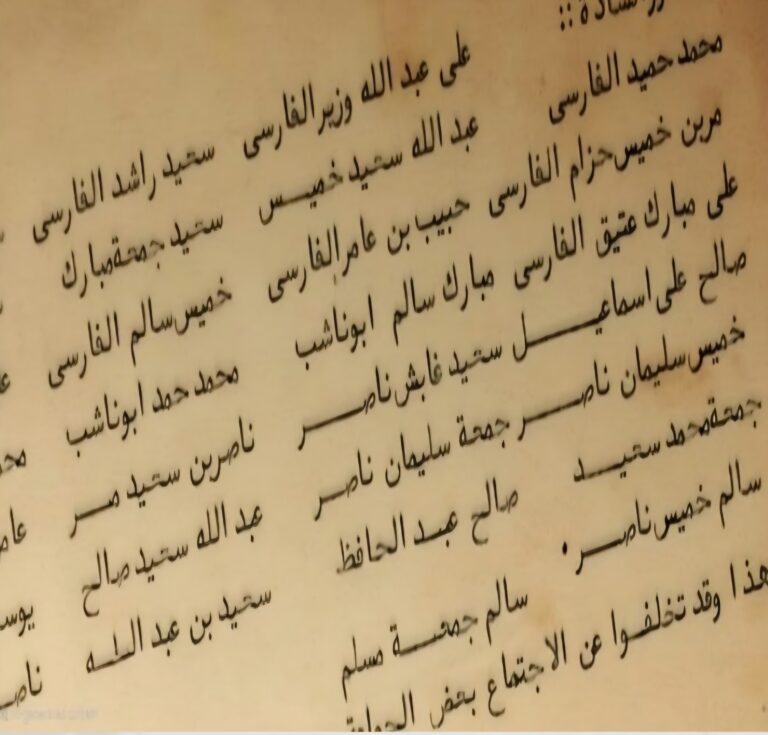 السادة :: على عبد الله وزير الفارسى سعيد راشد الفارسى
محمد حميد الفارسى عبد الله سعيد خميس سعيد جمعة مبارك
مر بن خميس حزام الفارسى حبيب بن عامر الفارسى خميس سالم الفارسى
على مبارك عتيق الفارسى مبارك سالم ابوناشب محمد حمد ابوناشب
صالح على اسماعيل سعيد غابش ناصر ناصر بن سعيد مر
خميس سليمان ناصر جمعة سليمان ناصر عبد الله سعيد صالح
جمعة محمد سعيد صالح عبد الحافظ سعيد بن عبد الله
سالم خميس ناصر . سالم جمعة مسلم
هذا وقد تخلفوا عن الاجتماع بعض